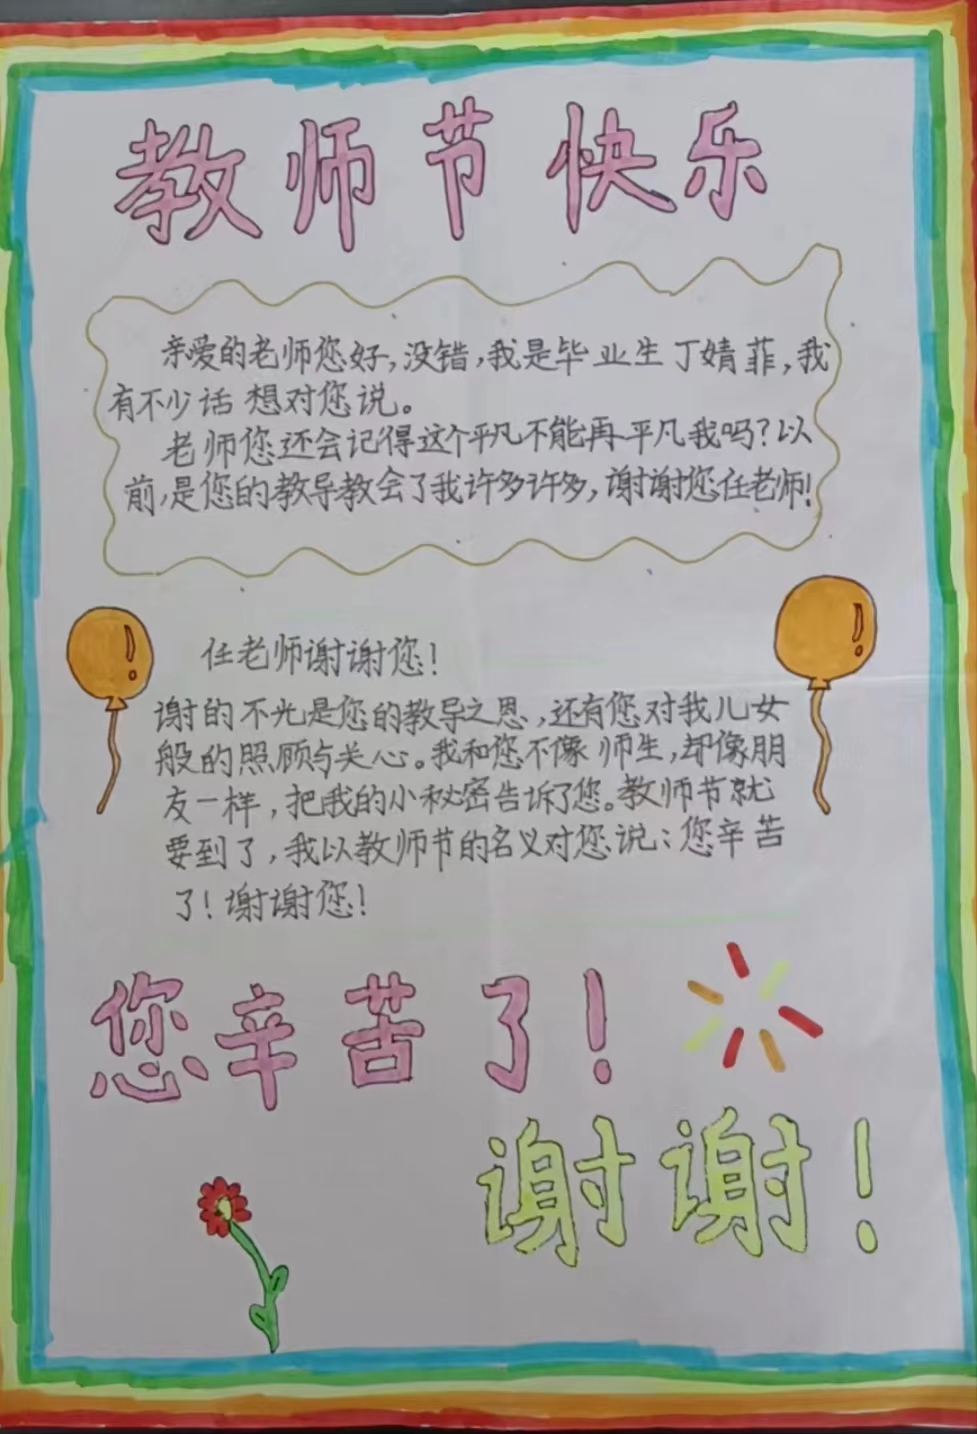 教师节快乐
亲爱的老师您好,没错,我是毕业生丁婧菲,我
有不少话想对您说。
老师您还会记得这个平凡不能再平凡我吗?以
前,是您的教导教会了我许多许多,谢谢您任老师!
任老师谢谢您!
谢的不光是您的教导之恩,还有您对我儿女
般的照顾与关心。我和您不像师生,却像朋
友一样,把我的小秘密告诉了您。教师节就
要到了,我以教师节的名义对您说:您辛苦
了!谢谢您!
您辛苦了!
谢谢!